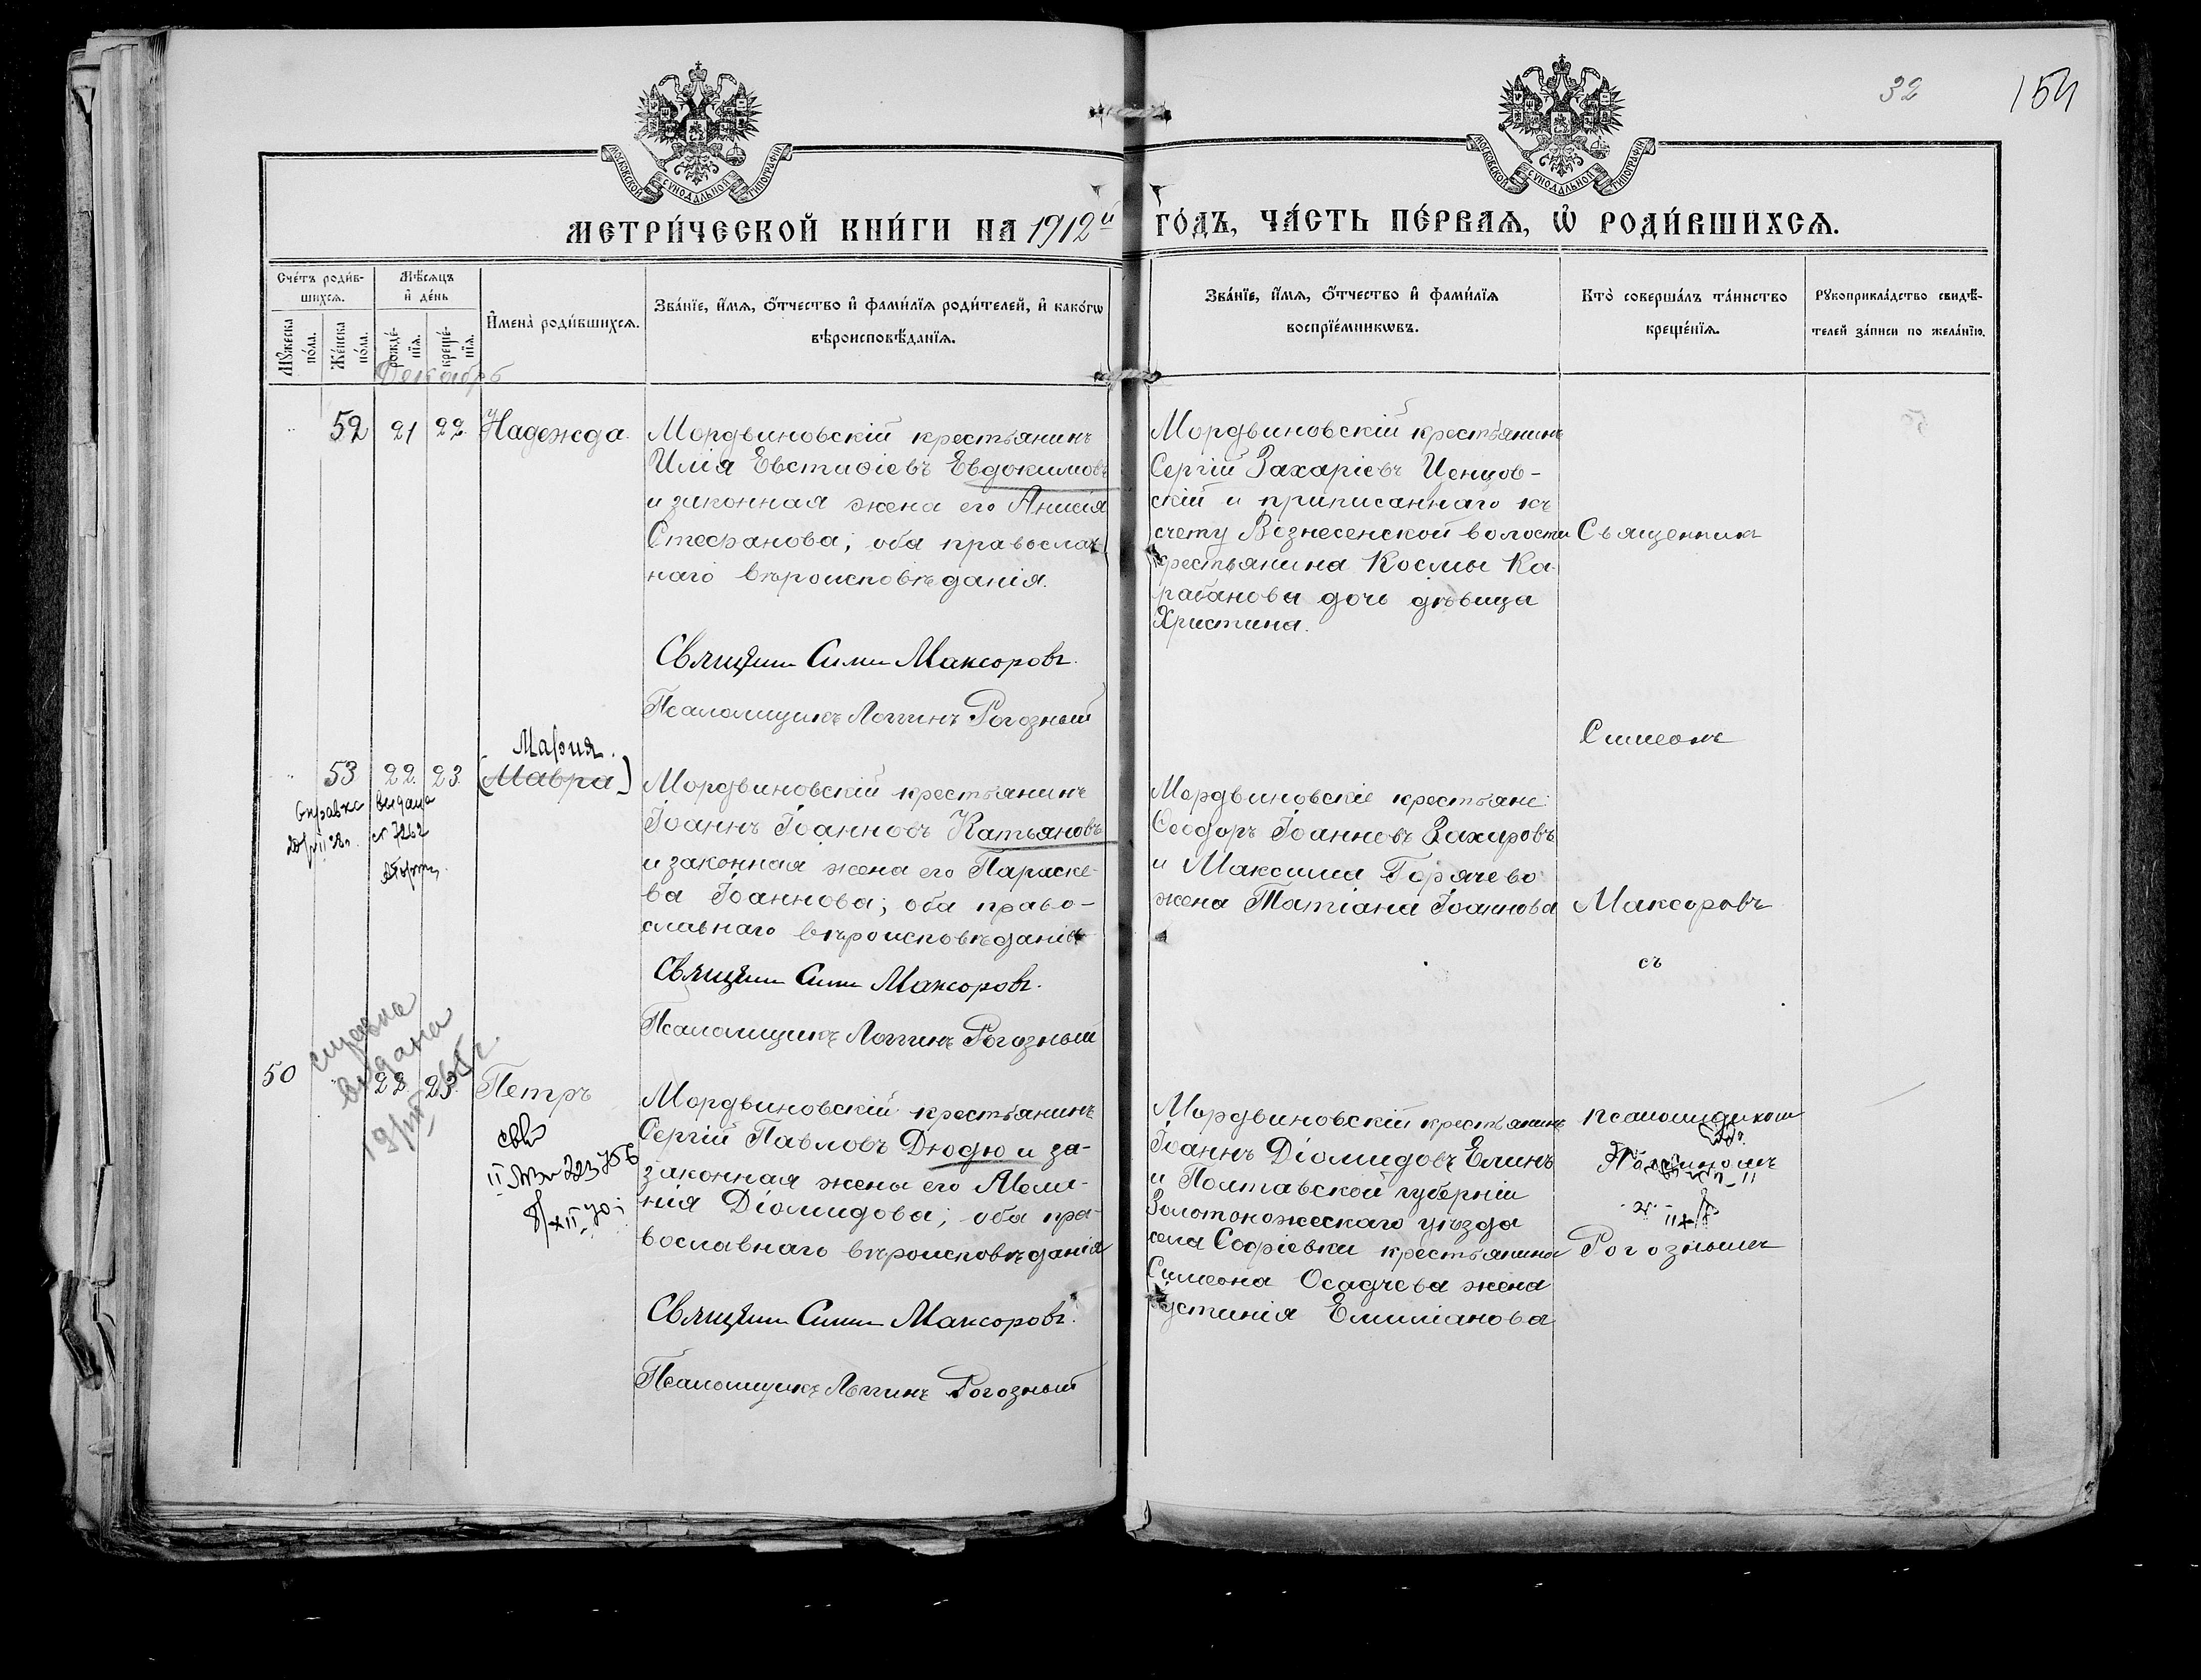 32
154
МОСКОВСКОЙ СѴНОДАЛЬНОЙ ТИПОГРАФІИ
МОСКОВСКОЙ СѴНОДАЛЬНОЙ ТИПОГРАФІИ
МЕТРИ́ЧЕСКОЙ КНИ́ГИ НА 1912й ГО́ДЪ, ЧА́СТЬ ПЕ́РВАѦ, Ѽ РОДИ́ВШИХСѦ.
Сче́тъ роди́в-
шихсѧ.
Мѣ́сѧцъ
и де́нь
Мꙋжеска по́ла.
Же́нска по́ла.
рожде́-
нїѧ.
креще́-
нїѧ.
Имена̀ роди́вшихсѧ.
Зва́нїе, и́мѧ, о́тчество и фами́лїѧ роди́телей, и како́гѡ
вѣроисповѣ́данїѧ.
Зва́нїе, и́мѧ, о́тчество и фами́лїѧ
воспрїе́мникѡвъ.
Кто̀ соверша́лъ та́инство
креще́нїѧ.
Рꙋкоприкла́дство свидѣ́-
телей за́писи по жела́нїю.
Декабрь
52 21 22 Надежда.
Мордвиновскій крестьянинъ
Илія Евстифіевъ Евдокимовъ
и законная жена его Анисія
Стефанова; оба православ-
наго вѣроисповѣданія.
Священ Симе Максоровъ.
Псаломщикъ Логгинъ Рогозный
Мордвиновскій крестьянинъ
Сергій Захаріевъ Ценцов-
скій и приписаннаго къ
счету Вознесенской волости
крестьянина Космы Ка-
рабанова дочь дѣвица
Христина.
Священникъ
Симеонъ
Мария.
53 22. 23. (Мавра)
Справка выдана
Мордвиновскій крестьянинъ
Іоаннъ Іоанновъ Катьяновъ
и законная жена его Параске-
ва Іоаннова; оба право-
славнаго вѣроисповѣданія
Священ Симе Максоровъ.
Псаломщикъ Логгинъ Рогозный
Мордвиновскіе крестьяне:
Ѳеодоръ Іоанновъ Захаровъ
и Максима Горячево
жена Татіана Іоаннова
Максоровъ
съ
справка
выдана
50 22. 23. Петръ
Мордвиновскій крестьянинъ
Сергій Павловъ Дюдю и за-
законная жена его Мела-
нія Діомидова; оба пра-
вославнаго вѣроисповѣданія
Священ Симе Максоровъ.
Псаломщикъ Логгинъ Рогозный
Мордвиновскій крестьянинъ
Іоаннъ Діомидовъ Елинъ
и Полтавской губерніи
Золотоножескаго уѣзда
села Софіевки крестьянина
Симеона Осадчева жена
Устинія Емиліанова
псаломщикомъ
Логгиномъ
Рогознымъ